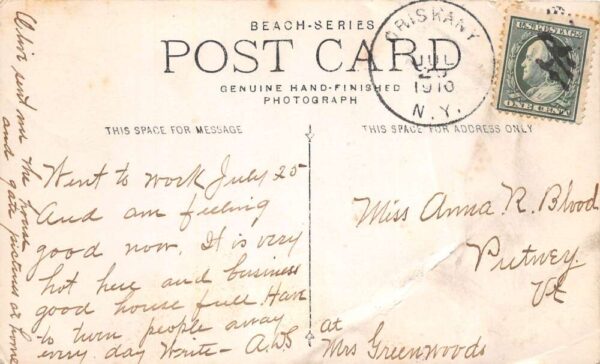 BEACH-SERIES
POST CARD
GENUINE HAND-FINISHED
PHOTOGRAPH
ORISKANY
JUL
1910
N.Y.
U.S. POSTAGE
ONE CENT
THIS SPACE FOR MESSAGE
THIS SPACE FOR ADDRESS ONLY
Went to work July 25
And am feeling
good now. It is very
hot here and business
good house full. Have
to turn people away
every day Write - A.W.S
sent me the house
and gate pictures at home
Miss Anna R. Blood
Putney
Vt
at
Mrs Greenwoods